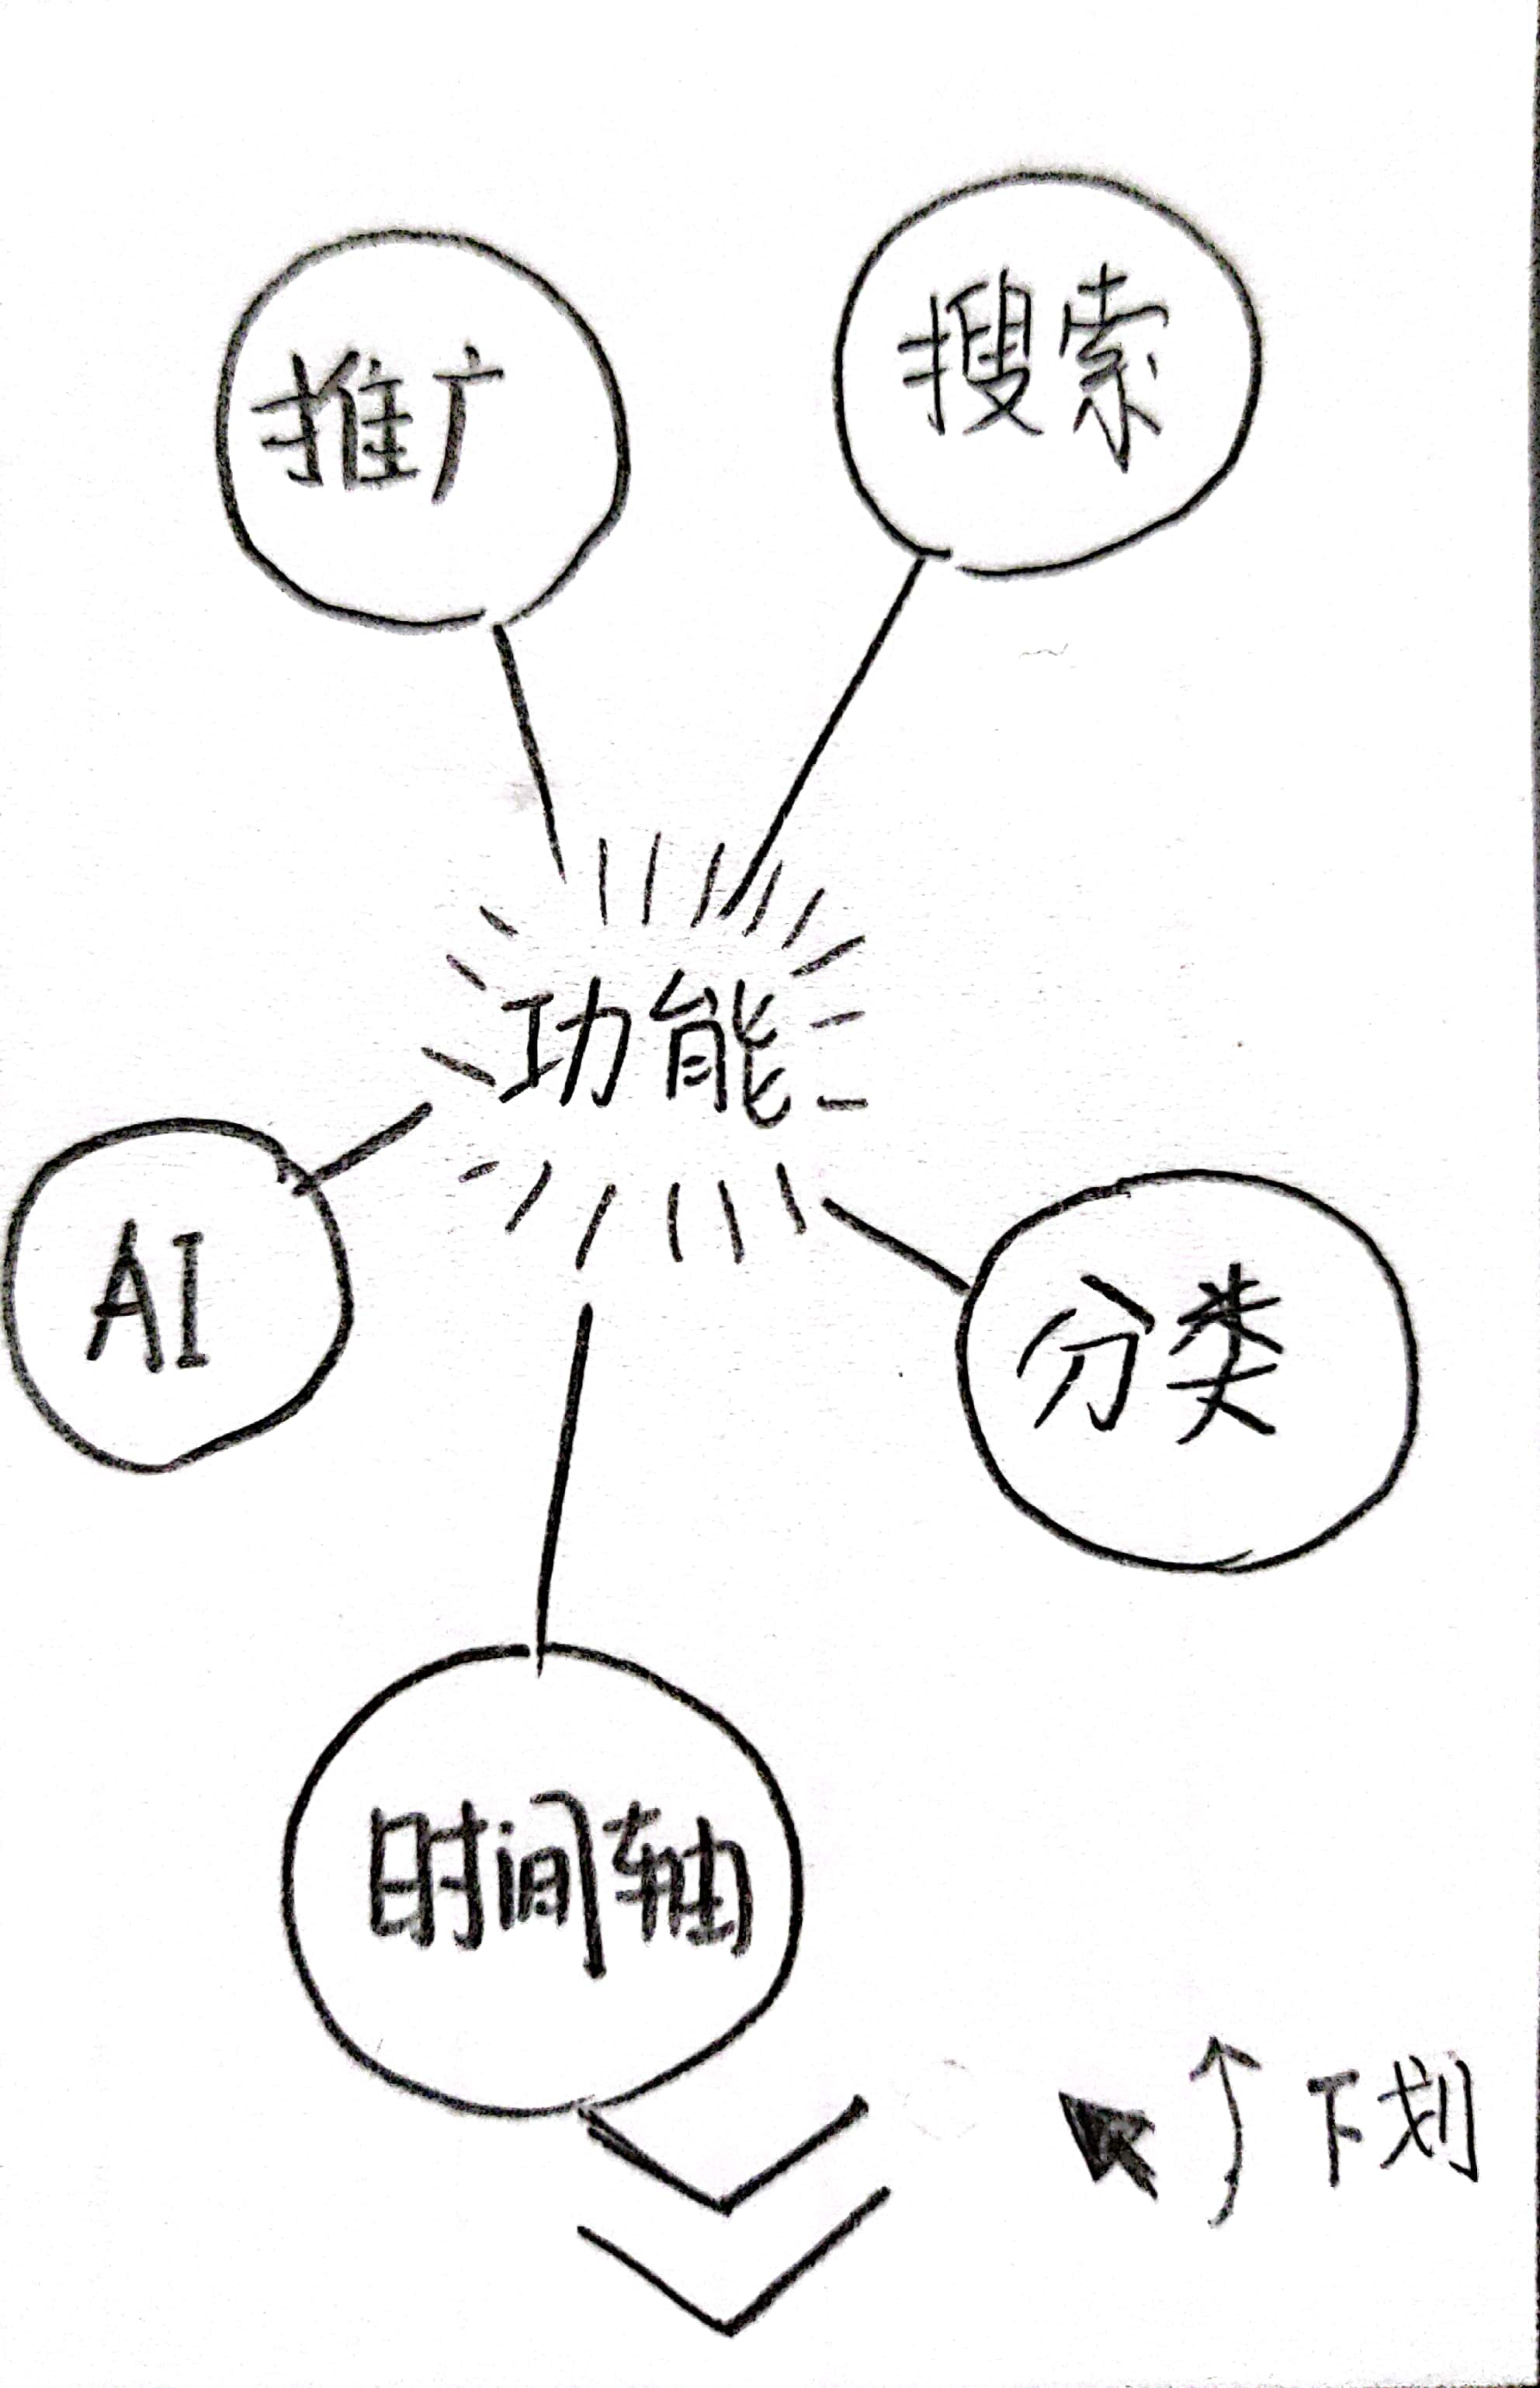 推广
搜索
功能
AI
分类
时间轴
下划